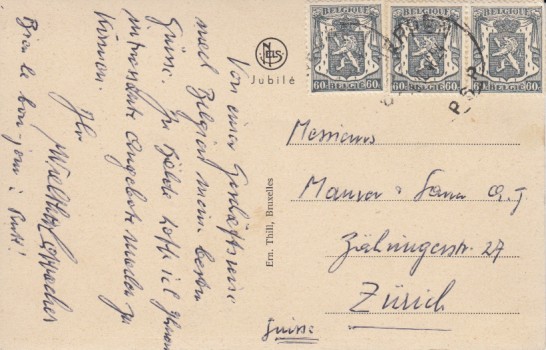 Von einer Geschäftsreise
nach Belgien meine besten
Grüsse. In Bälde hoffe ich Ihnen
interessante Angebote machen zu
können.
Ihr
Bien le bon-jour à
NELS
Jubilé
Ern. Thill, Bruxelles
BELGIQUE
60 60
BELGIË
BELGIQUE
60 60
BELGIË
BELGIQUE
60 60
BELGIË
Messieurs
Mauser & Sam A.G
Zähringerstr. 27
Zürich
Suisse